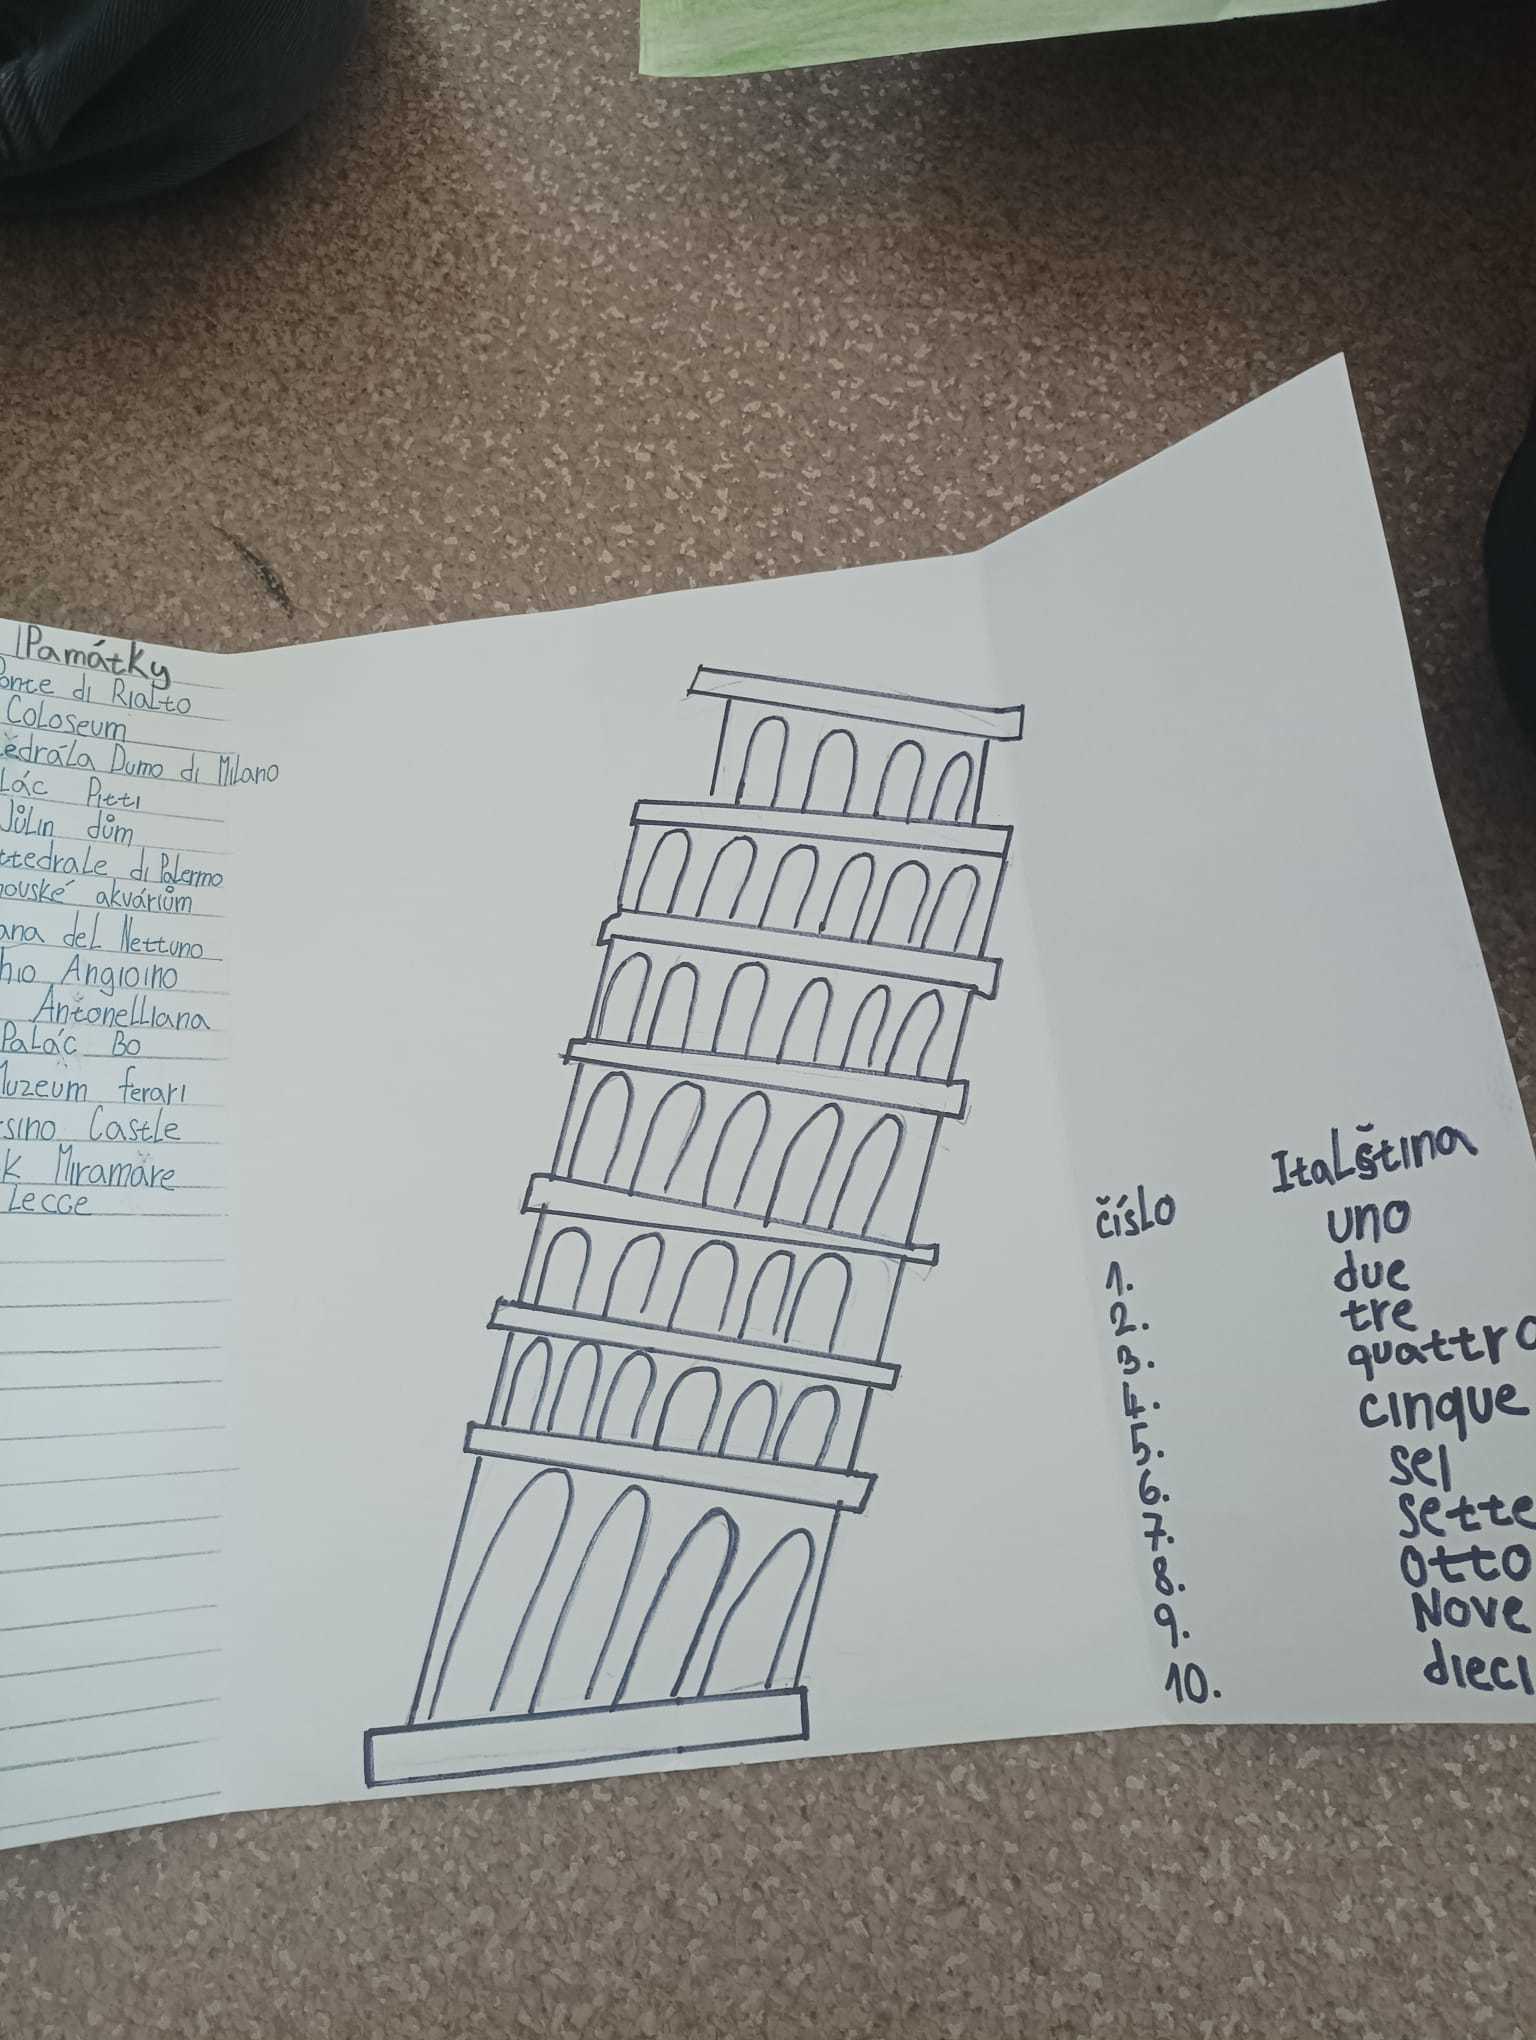 Památky
Ponte di Rialto
Coloseum
Dumo di Milano
Pitti
Jůlin dům
di Palermo
akvárium
del Nettuno
Angioino
Antonelliana
Palác Bo
Muzeum ferari
Castle
Miramare
Lecce
číslo Italština
1. uno
2. due
3. tre
4. quattro
5. cinque
6. sei
7. sette
8. otto
9. Nove
10. dieci